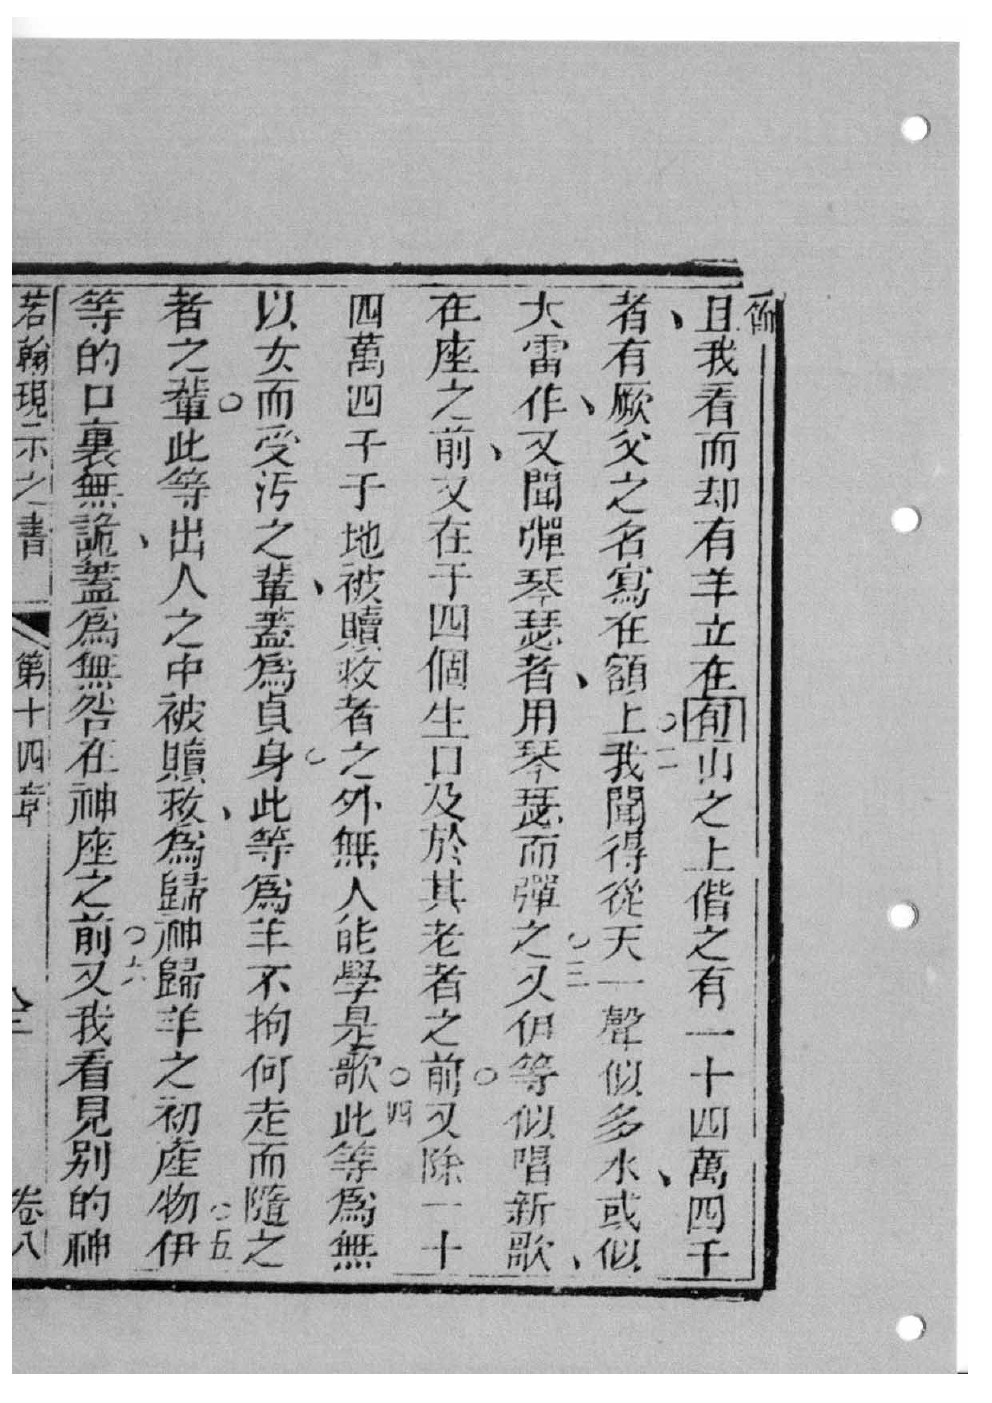 節
且我看而却有羊立在旬山之上偕之有一十四萬四千
者有厥父之名寫在額上○二我聞得從天一聲似多水、或似
大雷作、又聞彈琴瑟者、用琴瑟而彈之○三又伊等似唱新歌、
在座之前、又在于四個生口及於其老者之前○又除一十
四萬四千于地被贖救者之外無人能學是歌○四此等爲無
以女而受污之輩、蓋爲貞身○此等爲羊不拘何走而隨之
者之輩○此等出人之中被贖救、爲歸神歸羊之初產物○五伊
等的口裏無詭、蓋爲無咎在神座之前○六又我看見別的神
若翰現示之書 第十四章 卷八